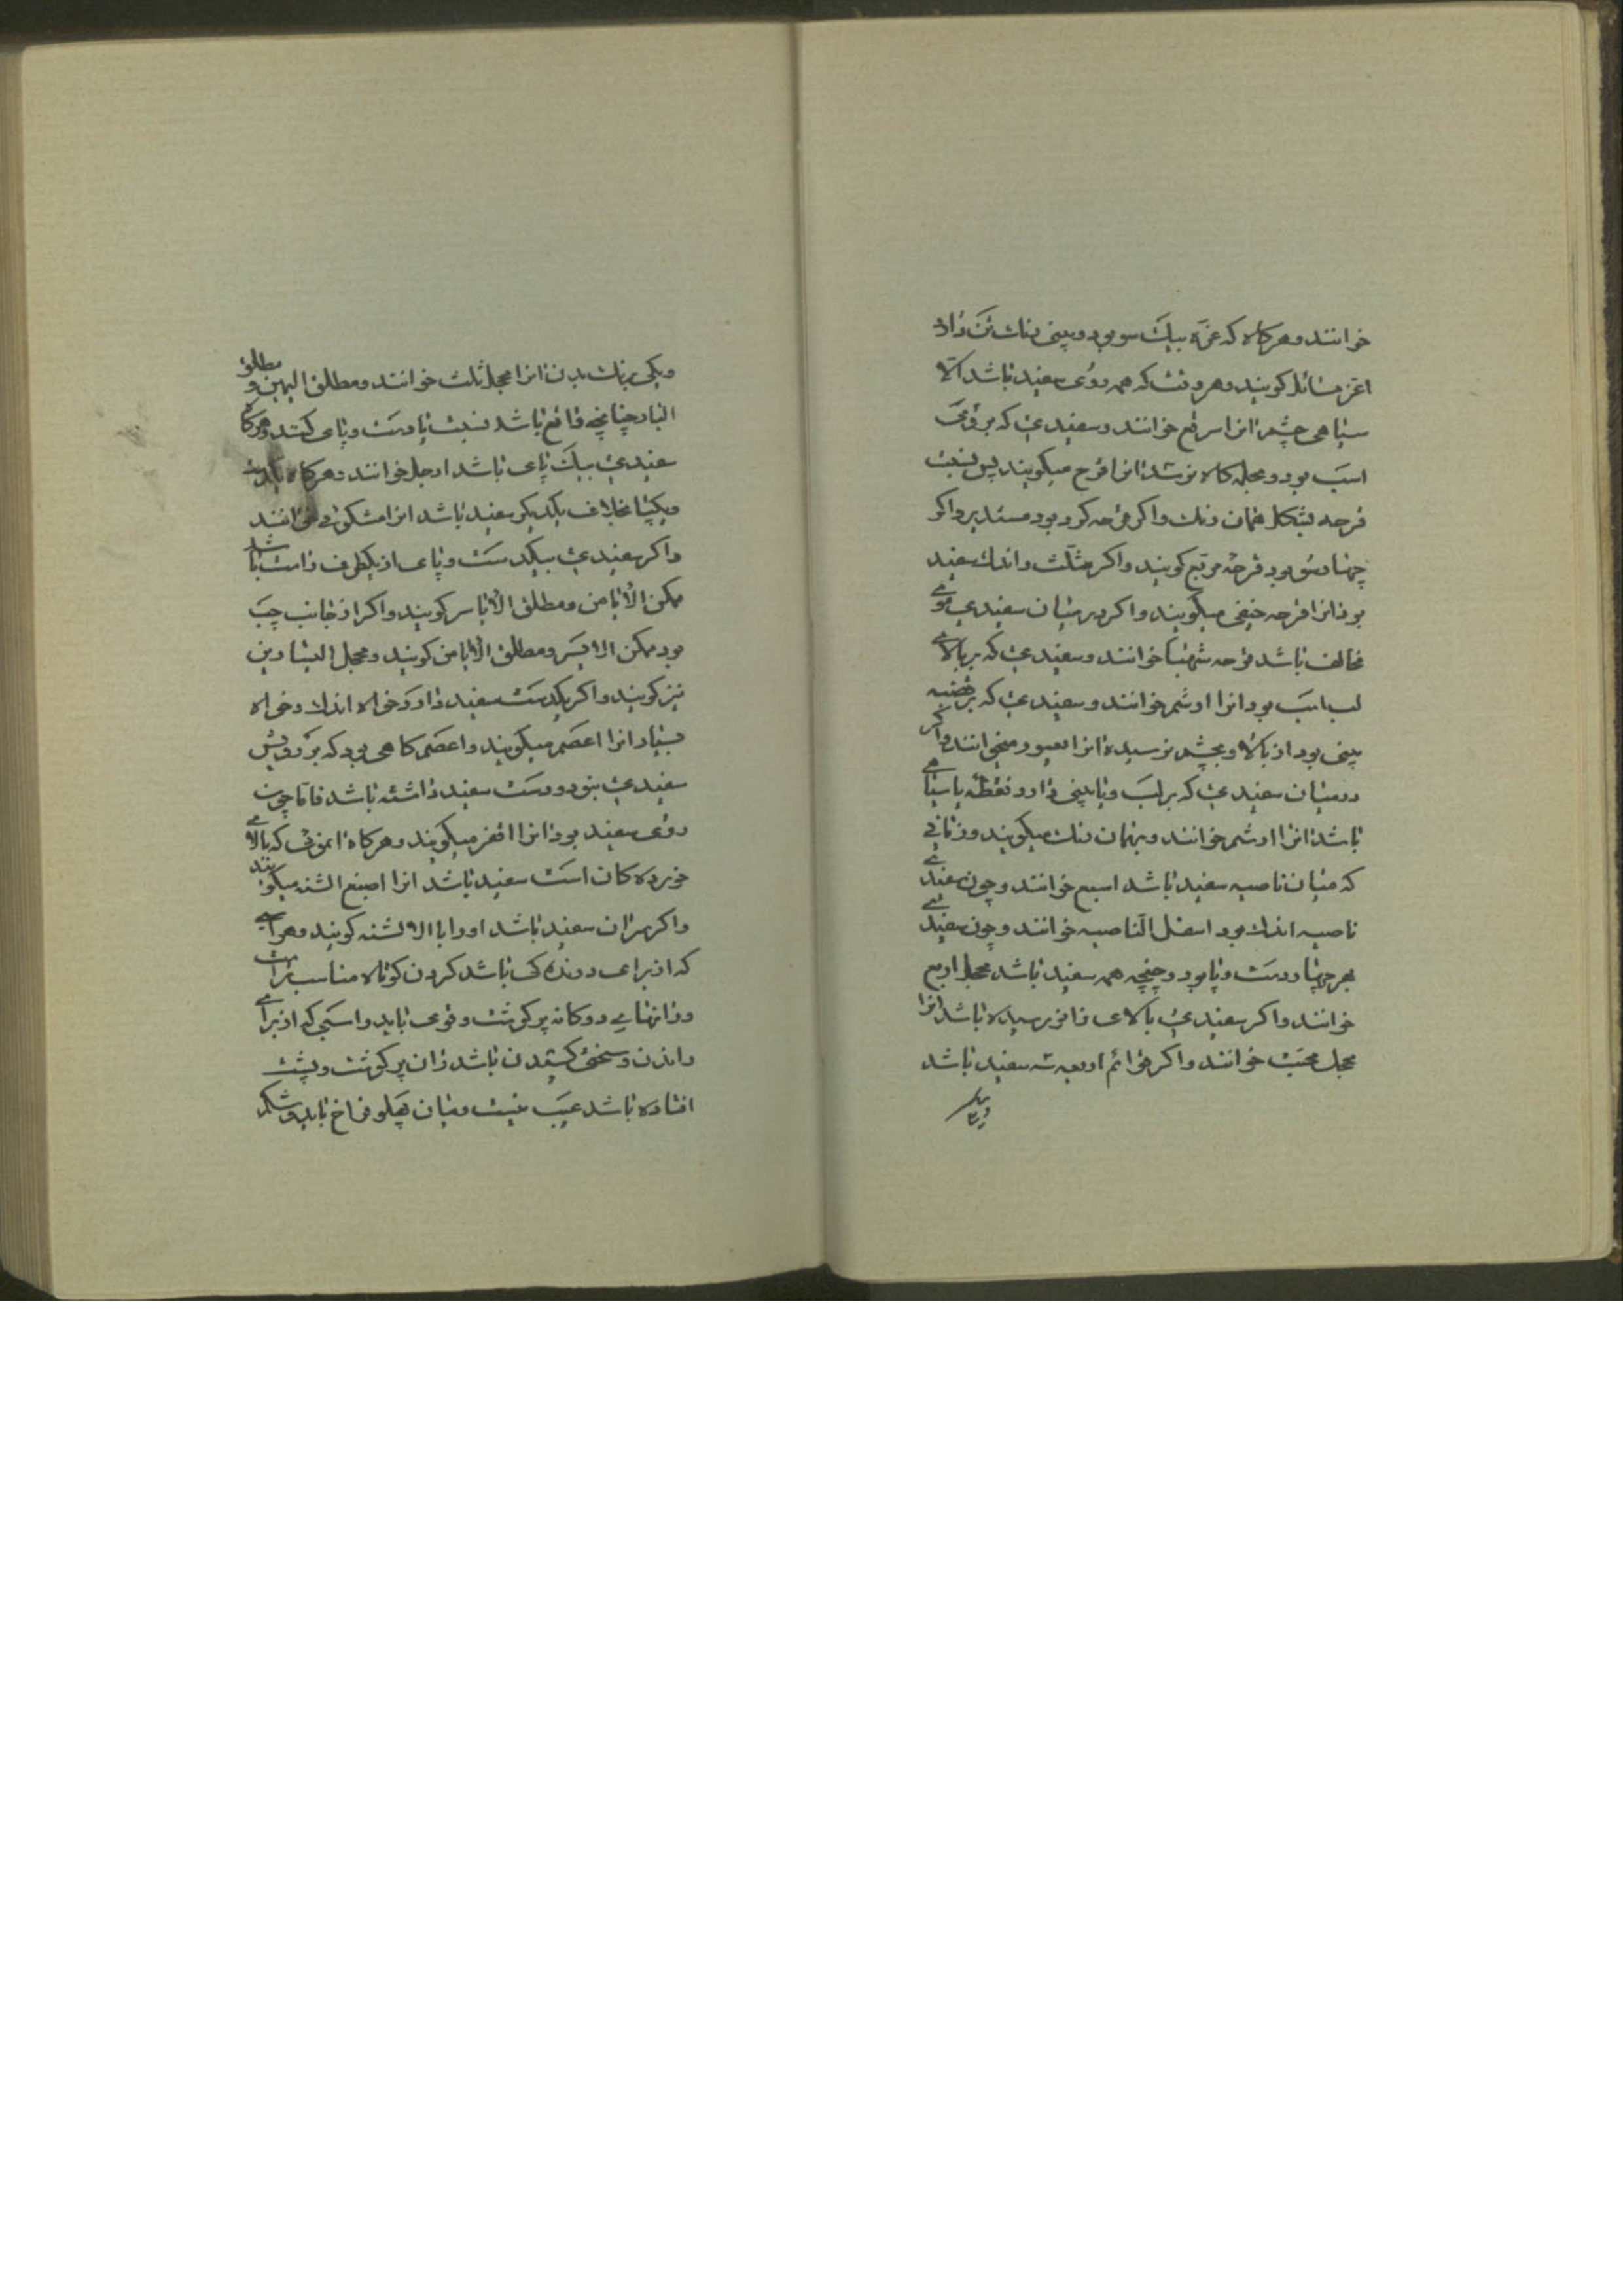 خوانند و هرکاه که غره بیک سو بود و بینی رنک تن دارد
اغر شائل کویند و هر وقت که همه روی سفید باشد الا
سیاهی چشم انرا سرقع خوانند و سفیدی که بر روی
اسب بود و بجمله کاه نرسد انرا قرح میکویند پس نسبت
قرحه بشکل همان رنک و اکر قرحه کرد بود مستدیر و اکر
چهارسو بود قرحه مربع کویند و اکر مثلث و اندک سفید
بود انرا قرحه خفی میکویند و اکر در میان سفیدی موی
مخالف باشد قرحه شهبا خوانند و سفیدی که بر بالای
لب اسب بود انرا ارثم خوانند و سفیدی که بر قصبه
بینی بود از بالا و بچشم نرسیده انرا یعبور میخوانند و اکر
در میان سفیدی که بر لب و یا بینی دارد نقطه یا سیاهی
باشد انرا ارثم خوانند و بهمان رنک میکویند و زمانی
که میان ناصیه سفید باشد اسعف خوانند و چون سفیدی
ناصیه اندک بود اسفل الناصیه خوانند و چون سفیدی
بهر چهار دست و پا بود و چنجه همه سفید باشد محجل اربع
خوانند و اکر سفیدی بالای زانو رسیده باشد انرا
محجل مجبب خوانند و اکر قوائم اربعه سه سفید باشد
و یکی
و یکی برنک بدن انرا محجل ثلث خوانند و مطلق الیمین و مطلق
الیسار چنانچه واقع باشد نسبت با دست و پای کنند و هرکاه
سفیدی بیک پای باشد ارجل خوانند و هرکاه یکدست
و یکپا بخلاف یکدیکر سفید باشد انرا مشکول خوانند
و اکر سفیدی بیکدست و پای از یکطرف راست باشد
ممکن الایامن و مطلق الایاسر کویند و اکر از جانب چپ
بود ممکن الایسر و مطلق الایامن کویند و محجل الیسارین
نیز کویند و اکر یکدست سفید دارد خواه اندک و خواه
بسیار انرا اعصم میکویند و اعصم کاهی بود که بر رویش
سفیدی نبود و دست سفید داشته باشد فاما چون
روی سفید بود انرا اقفز میکویند و هرکاه انموی که بالای
خورده کان است سفید باشد انرا اصبغ الثنه میکویند
و اکر سران سفید باشد او را باالا لثنه کویند و هر اسبی
که از برای دوندکی باشد کردن کوتاه مناسب تر است
و رانهای دوکانه پر کوشت و قوی باید و اسبی که از برای
راندن و سختی کشیدن باشد ران پر کوشت و پشت
افتاده باشد عیب نیست و میان پهلو فراخ باید و شکم